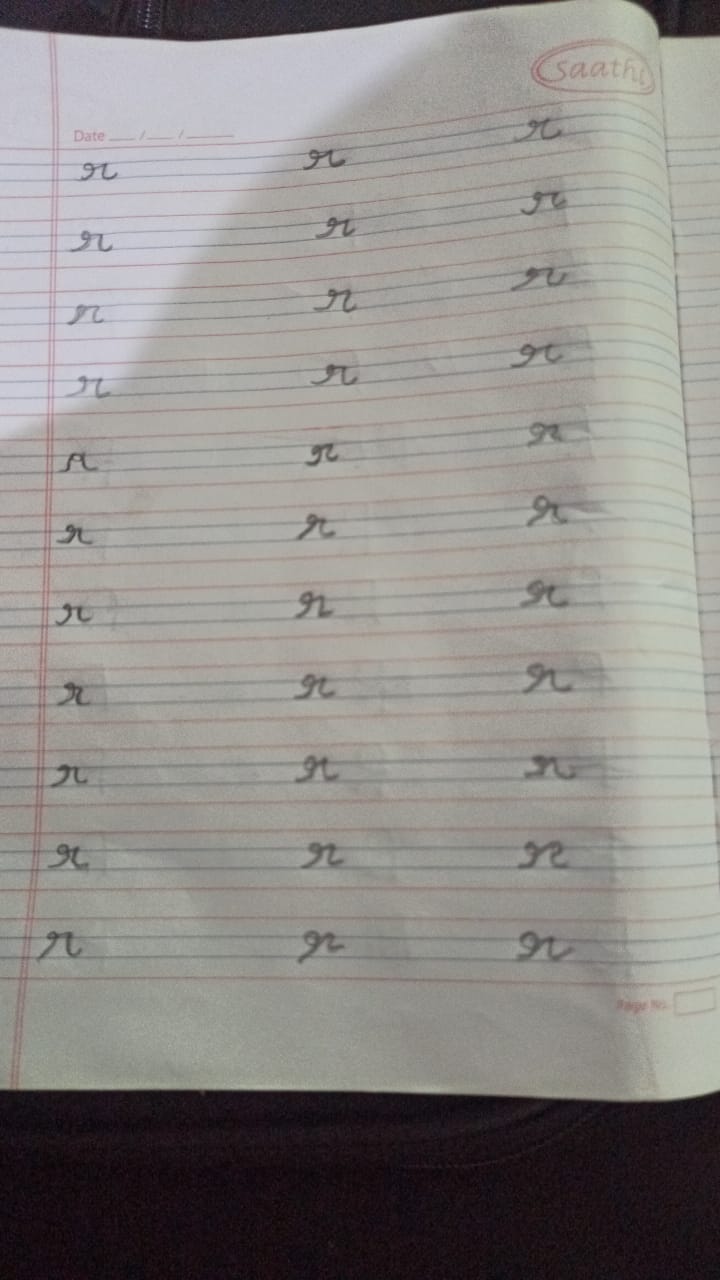 saathi
Date __/__/____
r r r
r r r
r r r
r r r
r r r
r r r
r r r
r r r
r r r
r r r
r r r
Page No.